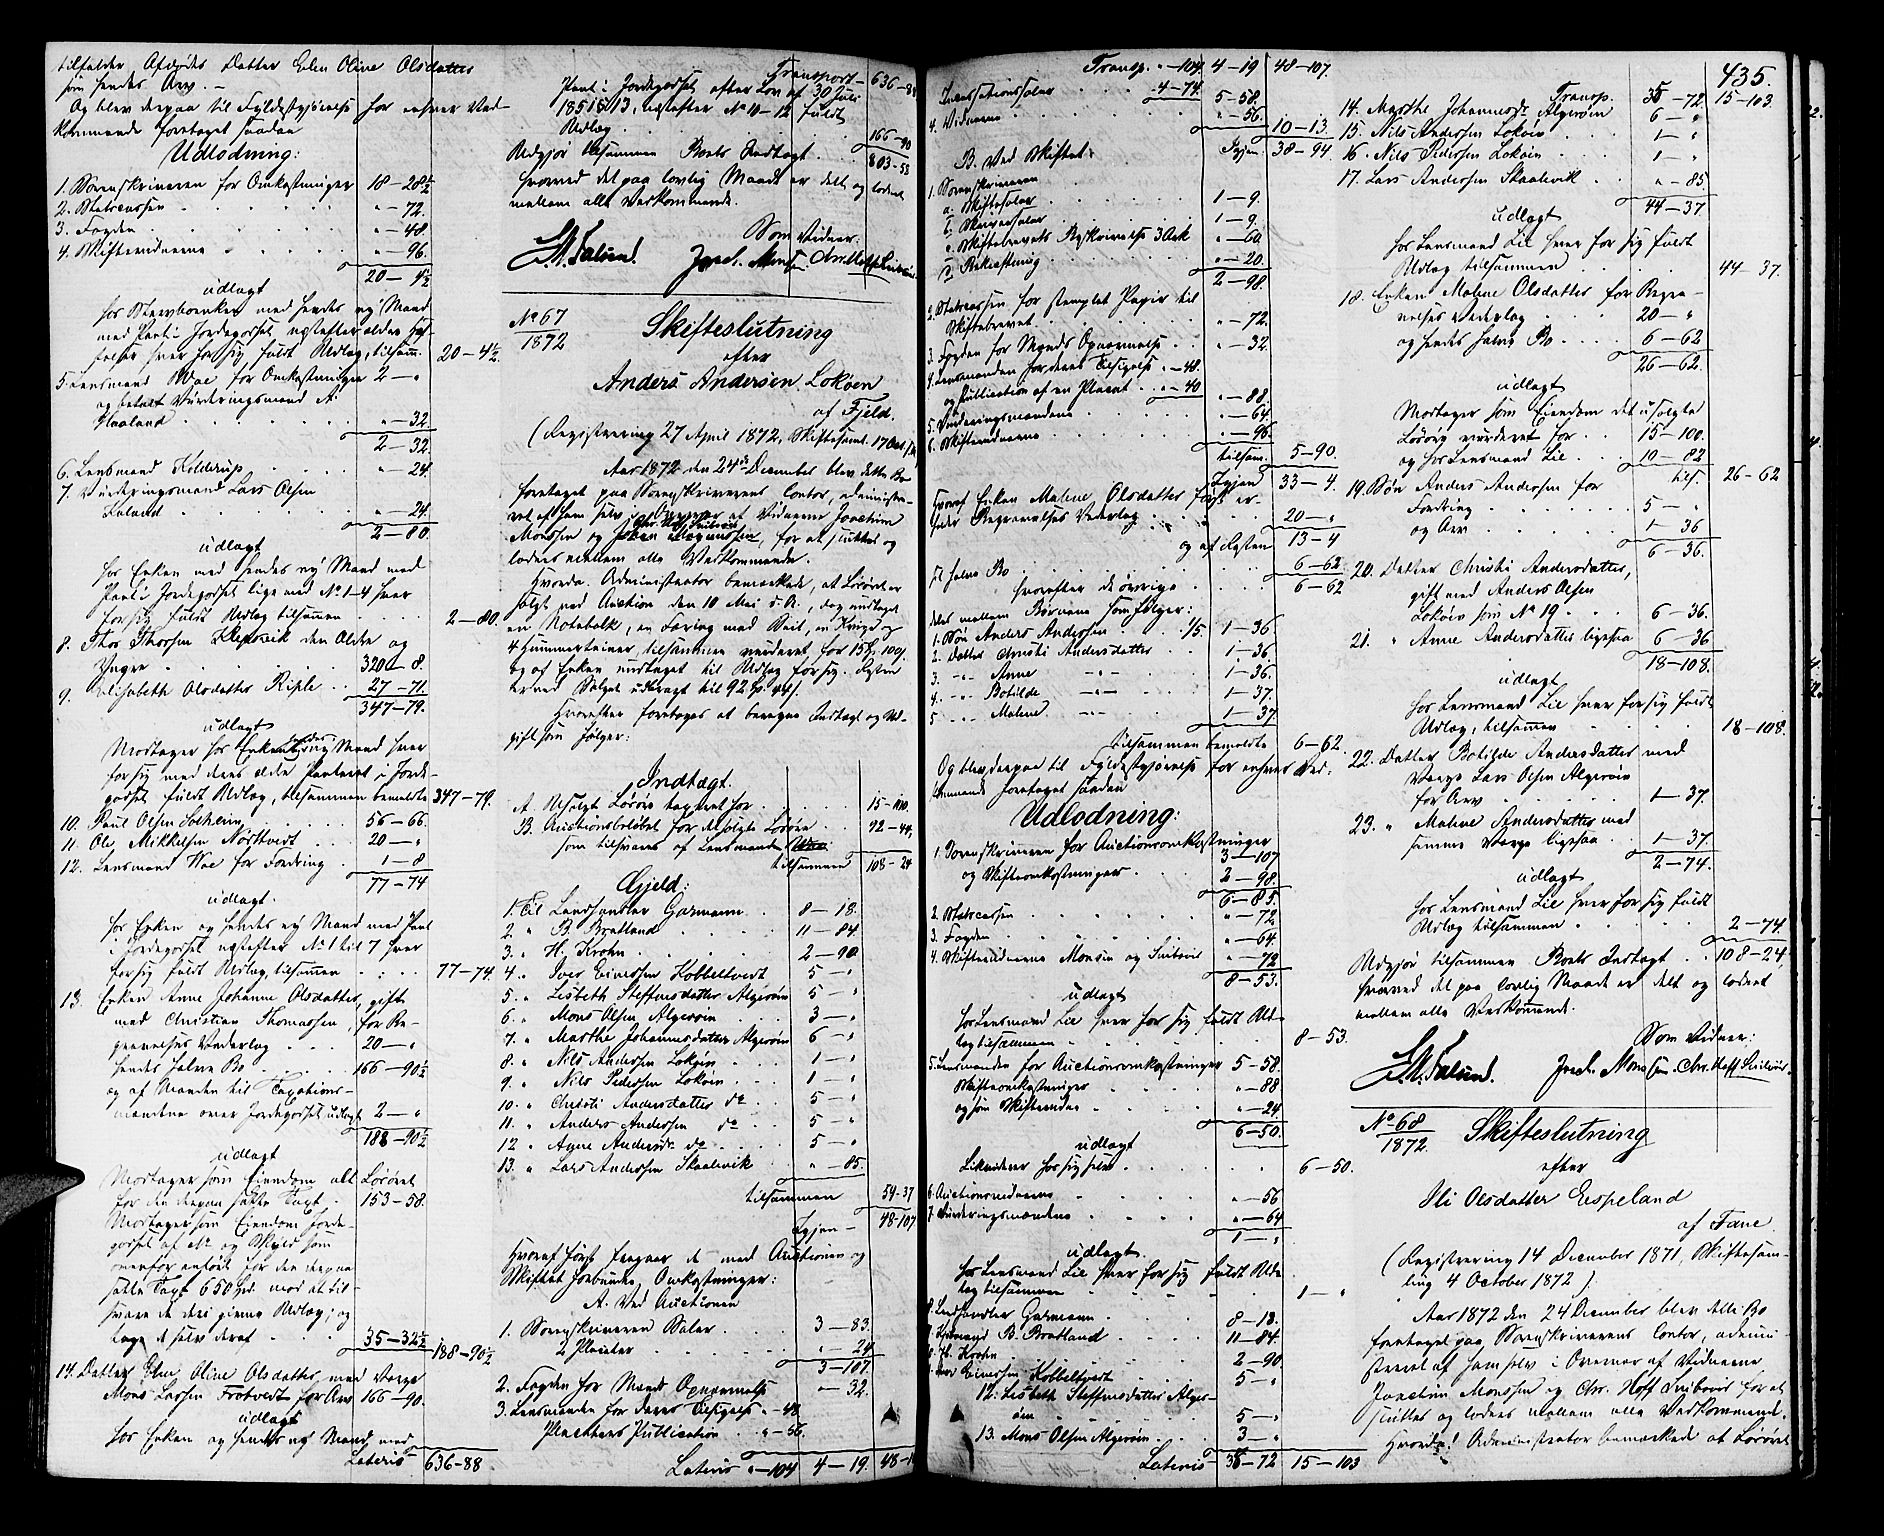 tilfalder Afdødes Datter Elen Oline Olsdatter
som hendes Arv. —
Og blev derpaa til Fyldestgjørelse for enhver Ved-
kommende foretaget saadan
Udlodning:
1. Sorenskriveren for Omkostninger 18 – 28½
2. Statscassen " – 72.
3. Fogden " – 48.
4. Skiftevidnerne " – 96.
20 – 4½
udlagt
hos Stervboenken med hendes ny Mand
med Pant i Jordegodset næstefter ældre Hef-
telser hver for sig fuldt Udlæg, tilsamm. 20 – 4½.
5. Lensmand Wae for Omkostninger 2 – "
og betalt Vurderingsmand A.
Haaland " – 32
2 – 32.
6. Lensmand Kolderup " – 24.
7. Vurderingsmand Lars Olsen
Haland " – 24.
2 – 80.
udlagt
hos Enken med hendes ny Mand med
Pant i Jordegodset lige med No 1–4 hver
for sig fuldt Udlæg tilsammen 2 – 80.
8. Thor Thorsen Klepsvik den Ældre og
Yngre 320 – 8.
9. Elisabeth Olsdatter Riple 27 – 71.
347 – 79.
udlagt
Modtager hos Enkens hendes ny Mand hver
for sig med deres ældre Panteret i Jorde-
godset fuldt Udlæg, tilsammen bemeldte 347 – 79.
10. Poul Olsen Solheim 56 – 66.
11. Ole Mikkelsen Nordtvedt 20 – "
12. Lensmand Wae for Fordring 1 – 8
77 – 74
udlagt.
hos Enken og hendes ny Mand med Pant
i Jordegodset næstefter No 1 til 7 hver
for sig fuldt Udlæg, tilsammen 77 – 74.
13. Enken Anne Johanne Olsdatter, gift
med Christian Thomassen, for Be-
gravelses Vederlag 20 – "
hendes halve Bo 166 – 90½
og af Manden til Taxations-
mændene over Jordegodset udlagt 2 – "
188 – 90½
udlagt
Modtager som Eiendom alt Løsøret
for den derpaa satte Taxt 153 – 58.
Modtager som Eiendom Jorde-
godset af Mt. og Skyld som
ovenfor anført for den derpaa
satte Taxt 650 Spd. mod at til-
svare de deri givne Udlæg; og
tage I selv deraf 35 – 32½ 188 – 90½
14. Datter Elen Oline Olsdatter med Verge
Mons Larssen Trotvedt for Arv 166 – 90.
udlagt
hos Enken og hendes ny Mand med
Lateris 636 – 88
Transport 636 – 88
Pant i Jordegodset efter Lov af 30 Juli
1851 § 13, næstefter No 10–12 fuldt
Udlæg 166 – 90
Udgjør tilsammen Boets Indtægt 803 – 58
hvorved det paa lovlig Maade er delt og loddet
mellem alle Vedkommende.
Som Vidner:
No 67
1872
Skifteslutning
efter
Anders Andersen Lokøen
af Fjeld.
(Registrering 27 April 1872, Skiftesaml. 17 Oct.
Aar 1872 den 24de December blev dette Bo
foretaget paa Sorenskriverens Contor, administre-
ret af ham selv i Overvær af Vidnerne Joachim
Monssen og Chr. Hoff Suibvir, for at sluttes og
loddes mellem alle Vedkommende.
Hvorda Administrator bemærkede, at Løsøret er
solgt ved Auction den 10 Mai d. A., dog undtaget
en Notebolk, en Færing med Seil, en Kvigd og
4 Hummerteiner, tilsammen vurderet for 15 Sp. 100 s.
og af Enken undtaget til Udlæg for sig. Resten
er ved Salget udbragt til 92 Sp. 44 s.
Hvorefter foretoges at beregne Indtægt og Ud-
gift som følger:
Indtægt.
A. Usolgt Løsøre taxeret for 15 – 100.
B. Auctionsbeløbet for det solgte Løsøre 92 – 44,
som tilsvares af Lensmanden
tilsammen 108 – 24
Gjeld:
1. Til Landhandler Garmann 8 – 18.
2. " B. Bratland 11 – 84.
3. " H. Krohn 2 – 90
4. " Iver Einersen Kobbeltvedt 5 – "
5. " Lisbeth Steffensdatter Algerøen 5 – "
6. " Mons Olsen Algerøen 3 – "
7. " Marthe Johannesdatter Algerøen 6 – "
8. " Nils Andersen Lokøen 1 – "
9. " Nils Pedersen Lokøen 1 – "
10. " Christi Andersdatter do 5 – "
11. " Anders Andersen do 5 – "
12. " Anne Andersdr. do 5 – "
13. " Lars Andersen Skaalevik " – 85.
tilsammen 59 – 37
Igjen – 48 – 107
Hvoraf først fragaar de med Auctionen og
Skiftet forbundne Omkostninger:
A. Ved Auctionen
1. Sorenskriveren Salær 3 – 83.
2 Placater " – 24
3 – 107.
2. Fogden for Mands Opnævnelse " – 32.
3. Lensmanden for deres Tilsigelse " – 48
Placatens Publication " – 56.
Lateris " – 104 4 – 19. 48 – 107
435.
Transp. " – 104. 4 – 19 48 – 107.
Incassationssalær 4 – 74. 5 – 58.
4. Vidnerne " – 56.
10 – 13.
Igjen 38 – 94.
B. Ved Skiftet:
1. Sorenskriveren
a. Skiftesalær 1 – 9.
b. Skriversalær 1 – 9.
c. Skiftebrevets Beskrivelse 3 Ark " – 60.
d. Bekræftning " – 20.
2 – 98.
2. Statscassen for stemplet Papir til
Skiftebrevet " – 72.
3. Fogden for Mænds Opnævnelse " – 32.
4. Lensmanden for deres Tilsigelse " – 48.
og Publication af en Placat " – 40 " – 88.
5. Vurderingsmændene " – 64.
6. Skiftevidnerne " – 96.
tilsam. 5 – 90.
Igjen 33 – 4.
Hvoraf Enken Malene Olsdatter først er-
holder Begravelses Vederlag 20 – "
og af Resten 13 – 4
til halve Bo 6 – 62
hvorefter de øvrige 6 – 62
deles mellem Børnene som følger:
1. Søn Anders Andersen 1/5. 1 – 36
2. Datter Christi Andersdatter 1 – 36
3. " Anne 1 – 36.
4. " Botilde 1 – 37.
5. " Malene 1 – 37.
tilsammen bemeldte 6 – 62.
Og blev derpaa til Fyldestgjørelse for enhver Ved-
kommende foretaget saadan
Udlodning:
1. Sorenskriveren for Auctionsomkostninger
3 – 107
og Skifteomkostninger 2 – 98.
6 – 85.
2. Statscassen " – 72
3. Fogden " – 64.
4. Skiftevidnerne Monsen og Suibvir " – 72
8 – 53.
udlagt
hos Lensmand Lie hver for sig fuldt Ud-
læg tilsammen 8 – 53.
5. Lensmanden for Auctionsomkostninger 5 – 58.
Skifteomkostninger " – 88
og som Skiftevidne " – 24.
6 – 50.
udlagt
Likviderer hos sig selv 6 – 50.
6. Auctionsvidnerne " – 56
7. Vurderingsmændene " – 64
1 – "
udlagt
hos Lensmand Lie hver for sig fuldt Ud-
læg tilsammen 1 – "
8. Landhandler Garmann 8 – 18.
B. Bratland 11 – 84.
H. Krohn 2 – 90
Iver Einersen Kobbeltvedt 5 – "
12. Lisbeth Steffensdatter Alger-
øen 5 – "
13. Mons Olsen Algerøen 3 – "
Lateris 35 – 72 15 – 103
Transp. 35 – 72 15 – 103.
14. Marthe Johannesdr. Algerøen 6 – "
15. Nils Andersen Lokøen 1 – "
16. Nils Pedersen Lokøen 1 – "
17. Lars Andersen Skaalevik " – 85
44 – 37
udlagt
hos Lensmand Lie hver for sig fuldt
Udlæg tilsammen 44 – 37.
18. Enken Malene Olsdatter for Begra-
velses Vederlag 20 – "
og hendes halve Bo 6 – 62
26 – 62.
udlagt
Modtager som Eiendom det usolgte
Løsøre vurderet for 15 – 100.
og hos Lensmand Lie 10 – 82
tils. 26 – 62
19. Søn Anders Andersen for
Fordring 5 – "
og Arv 1 – 36
6 – 36.
20. Datter Christi Andersdatter,
gift med Anders Olsen
Lokøen som No 19 6 – 36.
21. " Anne Andersdatter ligesaa 6 – 36
18 – 108.
udlagt
hos Lensmand Lie hver for sig fuldt
Udlæg, tilsammen 18 – 108.
22. Datter Botilde Andersdatter med
Verge Lars Olsen Algerøen
for Arv 1 – 37.
23. " Malene Andersdatter med
samme Verge ligesaa 1 – 37.
2 – 74.
udlagt
hos Lensmand Lie hver for sig fuldt
Udlæg tilsammen 2 – 74.
Udgjør tilsammen Boets Indtægt 108 – 24,
hvorved det paa lovlig Maade er delt og loddet
mellem alle Vedkommende.
Som Vidner:
No 68
1872.
Skifteslutning
efter
Ili Olsdatter Espeland
af Fane
(Registrering 14 December 1871, Skiftesam-
ling 4 October 1872)
Aar 1872 den 24 December blev dette Bo
foretaget paa Sorenskriverens Contor, admini-
streret af ham selv i Overvær af Vidnerne
Joachim Monssen og Chr. Hoff Suibvir for at
sluttes og loddes mellem alle Vedkommende.
Hvorda Administrator bemærkede at Løsøret